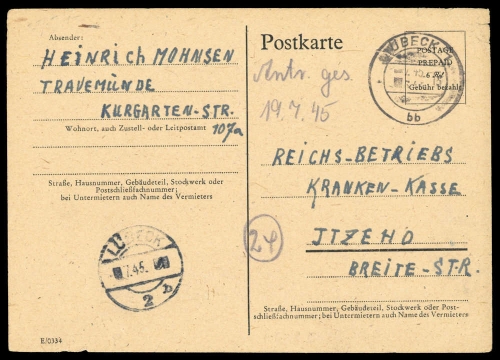 Absender:
HEINRICH MOHNSEN
TRAVEMÜNDE
KURGARTEN-STR.
Wohnort, auch Zustell- oder Leitpostamt
107a
Straße, Hausnummer, Gebäudeteil, Stockwerk oder
Postschließfachnummer;
bei Untermietern auch Name des Vermieters
LÜBECK
7.45.
2
E/0334
Postkarte
POSTAGE
PREPAID
Gebühr bezahlt
LÜBECK
bb
Antr. ges.
19.7.45
REICHS-BETRIEBS
KRANKEN-KASSE
24
ITZEHO
BREITE-STR.
Straße, Hausnummer, Gebäudeteil, Stockwerk oder Post-
schließfachnummer; bei Untermietern auch Name des Vermieters